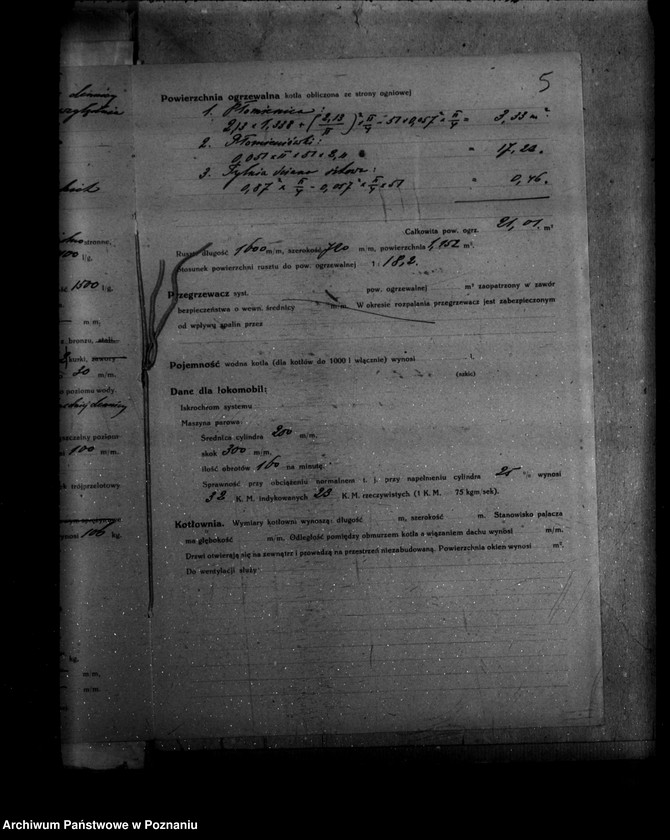 5
Powierzchnia ogrzewalna kotła obliczona ze strony ogniowej
1. Płomienica:
= 3,33 m²
2. Płomieniówki:
" 17,22.
3. Tylnia ściana
" 0,46.
Całkowita pow. ogrz. 21,01. m²
Ruszt długość 1600 m/m, szerokość 720 m/m, powierzchnia 1,152 m².
Stosunek powierzchni rusztu do pow. ogrzewalnej 1 : 18,2.
Przegrzewacz syst. pow. ogrzewalnej m² zaopatrzony w zawór
bezpieczeństwa o wewn. średnicy m/m. W okresie rozpalenia przegrzewacz jest zabezpieczonym
od wpływu spalin przez
Pojemność wodna kotła (dla kotłów do 1000 l włącznie) wynosi l.
(szkic)
Dane dla lokomobil:
Iskrochron systemu
Maszyna parowa
Średnica cylindra 200 m/m.
skok 300 m/m.
ilość obrotów 160 na minutę.
Sprawność przy obciążeniu normalnem t. j. przy napełnieniu cylindra 25 % wynosi
32 K. M. indykowanych 23 K. M. rzeczywistych (1 K. M. 75 kgm/sek).
Kotłownia. Wymiary kotłowni wynoszą: długość m, szerokość m. Stanowisko palacza
ma głębokość m/m. Odległość pomiędzy obmurzem kotła a wiązaniem dachu wynosi m/m.
Drzwi otwierają się na zewnątrz i prowadzą na przestrzeń niezabudowaną. Powierzchnia okien wynosi m².
Do wentylacji służy
stronne,
l/g.
1500 l/g.
m/m.
bronzu,
kurki, zawory
30 m/m.
poziomu wody
100 m/m.
trójprzelotowy
106 kg.
kg.
m/m.
m/m.
Archiwum Państwowe w Poznaniu